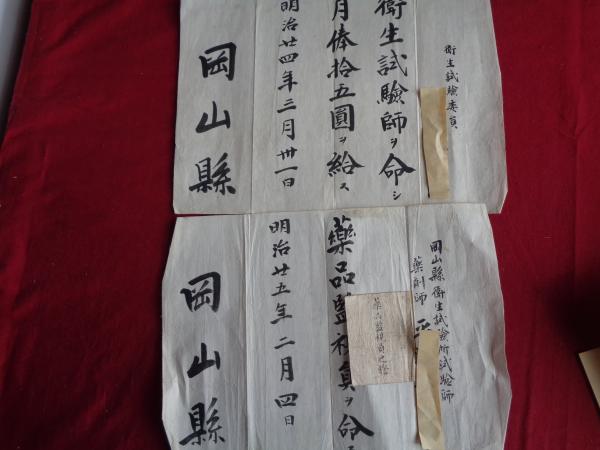 衛生試験委員
衛生試験師ヲ命シ
月俸拾五圓ヲ給ス
明治廿四年三月卅一日
岡山縣
岡山縣衛生試験所試験師
薬剤師
薬品監視員之證
藥品監視員ヲ命
明治廿五年二月四日
岡山縣